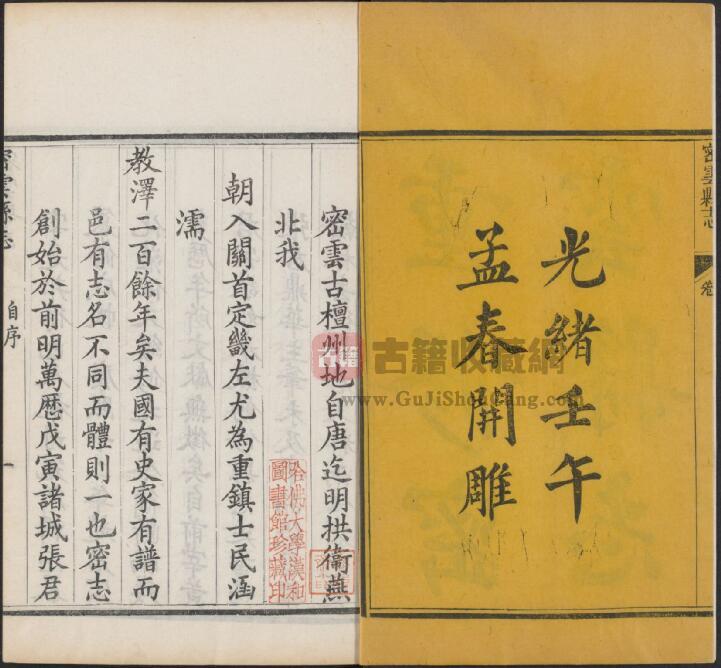 密雲縣志
卷
光緒壬午
孟春開雕
密雲古檀州地自唐迄明拱衞燕
北我
朝入關首定畿左尤為重鎮士民涵
濡
教澤二百餘年矣夫國有史家有譜而
邑有志名不同而體則一也密志
創始於前明萬歷戊寅諸城張君
密雲縣志
自序
一
哈佛大學漢和
圖書館珍藏印
古籍
古籍收藏網
www.GuJiShouCang.com